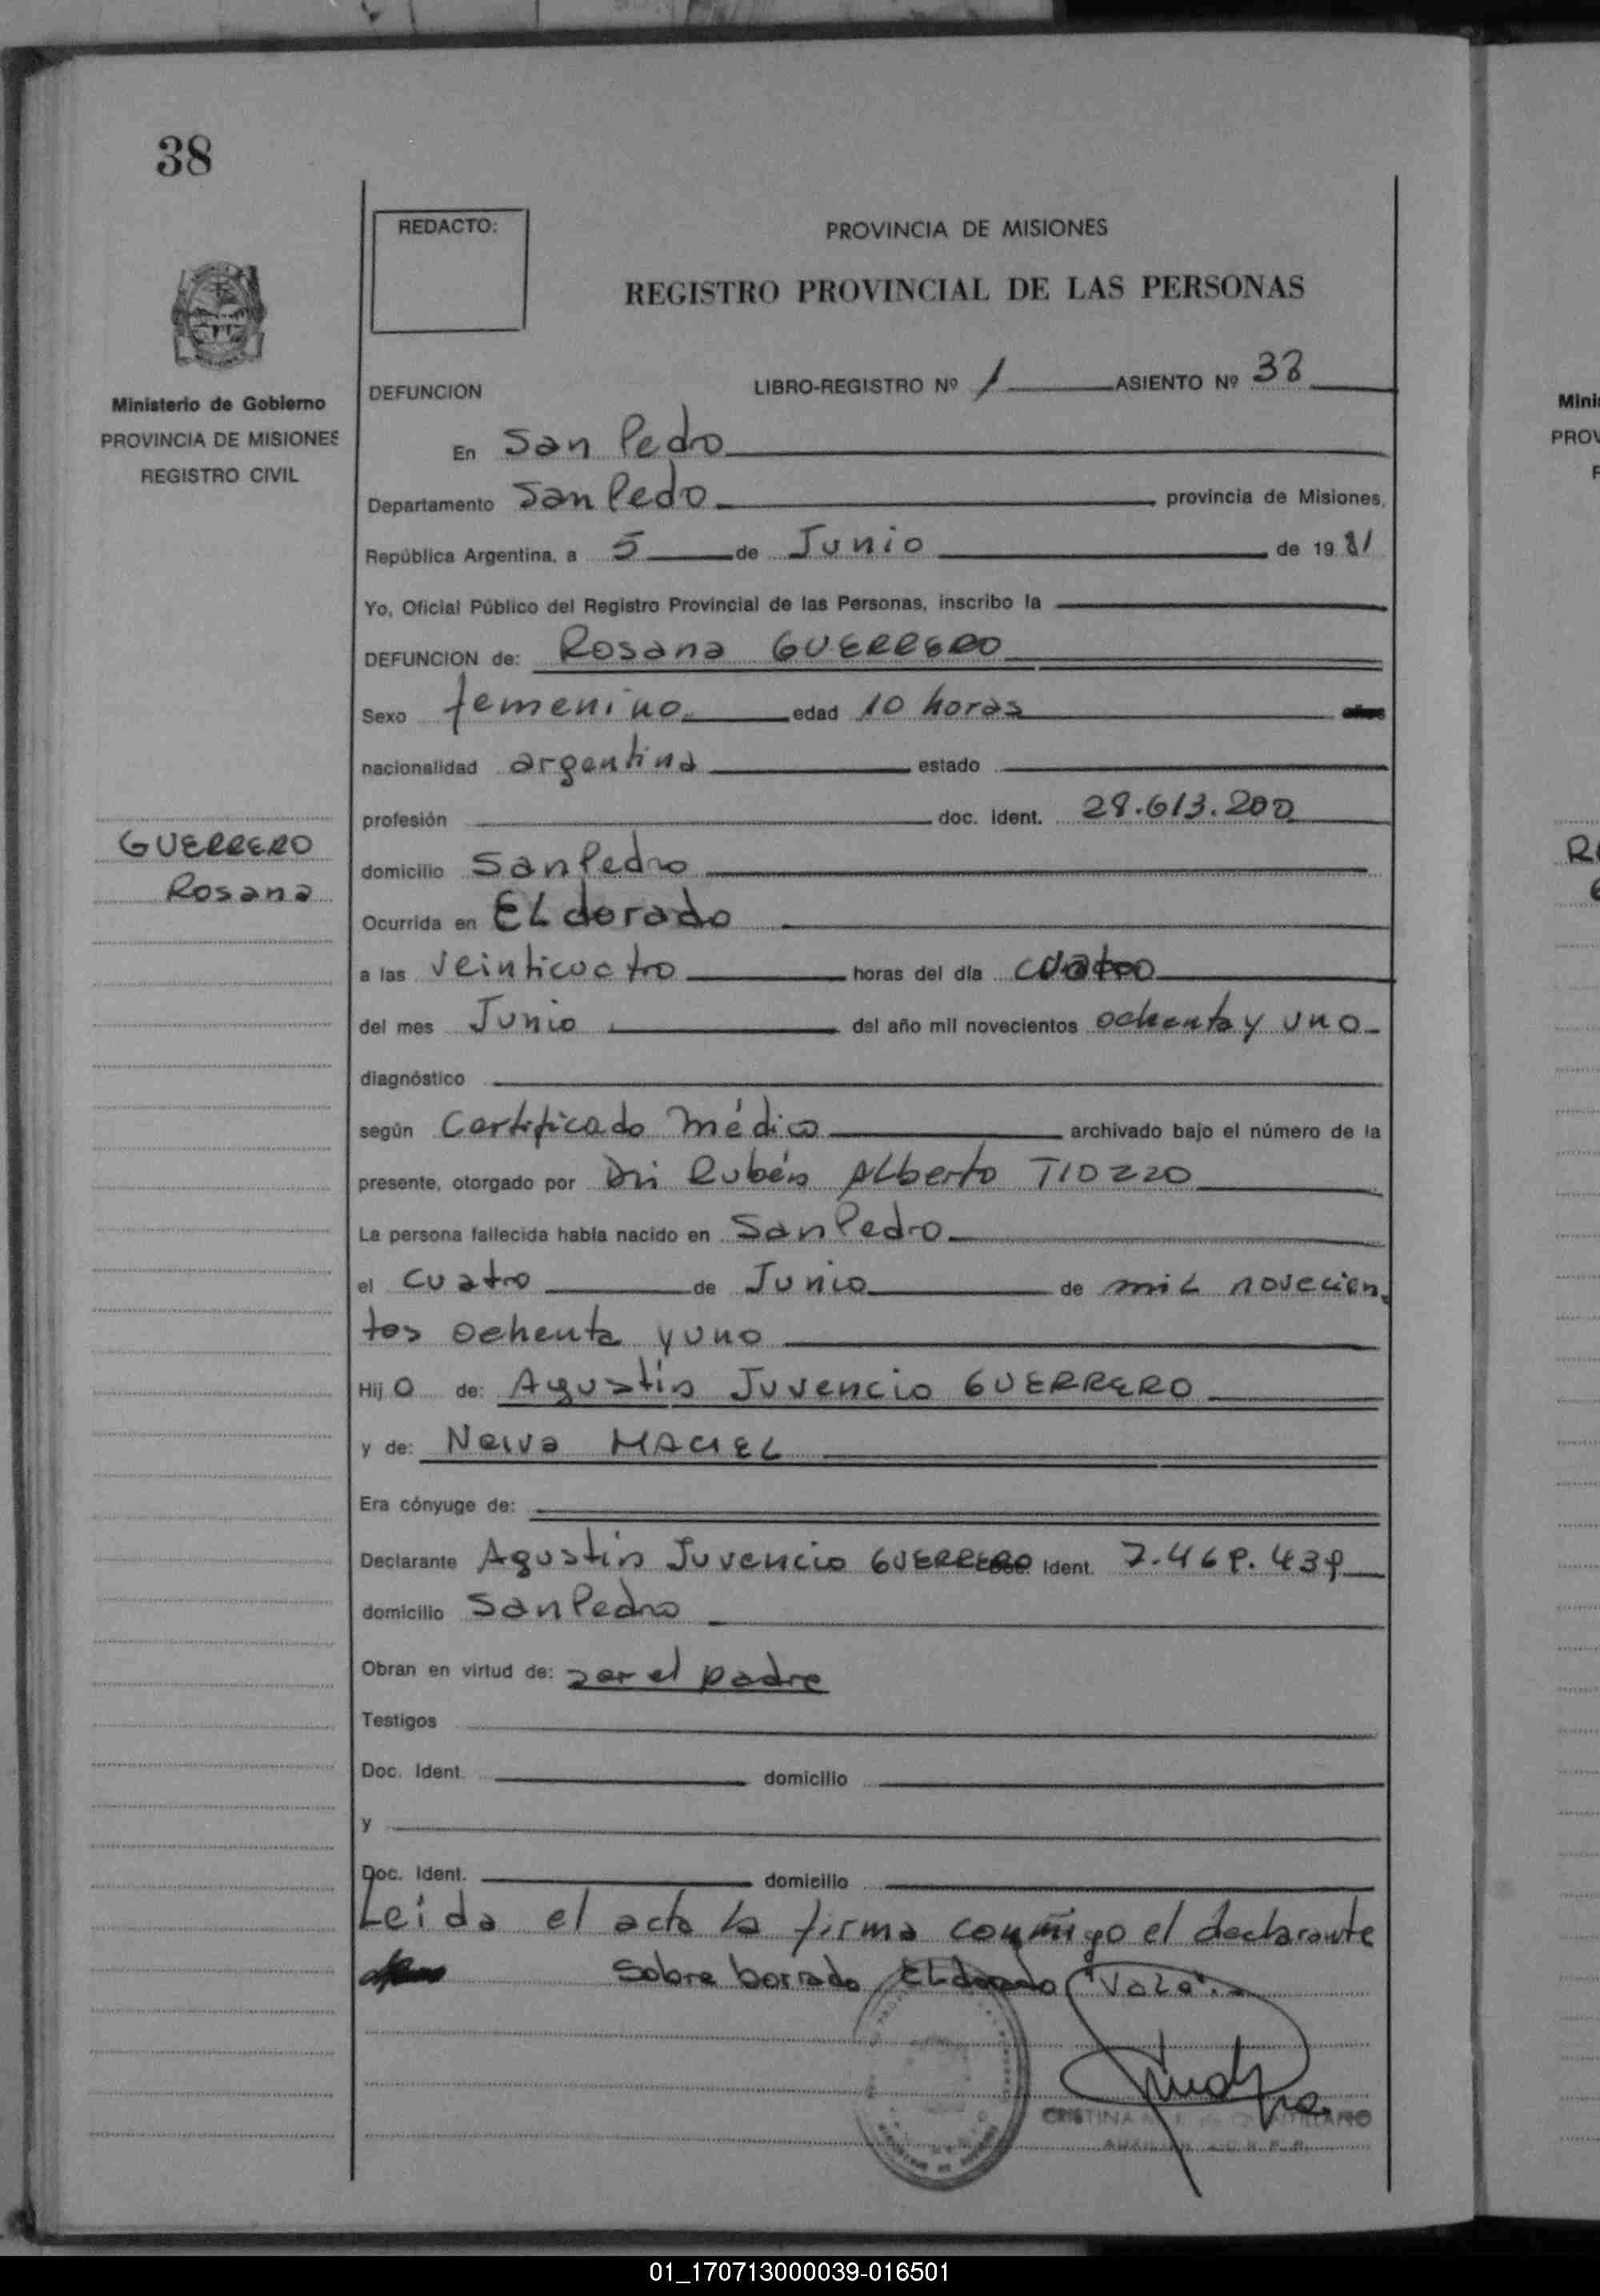 38
REDACTO:
PROVINCIA DE MISIONES
REGISTRO PROVINCIAL DE LAS PERSONAS
Ministerio de Gobierno
PROVINCIA DE MISIONES
REGISTRO CIVIL
DEFUNCION LIBRO-REGISTRO Nº 1 ASIENTO Nº 38
En San Pedro
Departamento San Pedo provincia de Misiones,
República Argentina, a 5 de Junio de 1981
Yo, Oficial Público del Registro Provincial de las Personas, inscribo la
DEFUNCION de: Rosana GUERRERO
Sexo femenino edad 10 horas
nacionalidad argentina estado
profesión doc. ident. 28.613.200
GUERRERO
Rosana
domicilio San Pedro
Ocurrida en ELdorado
a las veinticuatro horas del día cuatro
del mes Junio del año mil novecientos ochenta y uno
diagnóstico
según Certificado médico archivado bajo el número de la
presente, otorgado por Rubén Alberto TIOZZO
La persona fallecida había nacido en San Pedro
el cuatro de Junio de mil novecien
tos ochenta y uno
Hijo de: Agustin Juvencio GUERRERO
y de: Neiva MACIEL
Era cónyuge de:
Declarante Agustin Juvencio GUERRERO Ident. 7.469.439
domicilio San Pedro
Obran en virtud de: ser el padre
Testigos
Doc. Ident. domicilio
y
Doc. Ident. domicilio
Leida el acta la firma conmigo el declarante
Sobre borrado ELdorado "Vale".
CRISTINA
01_170713000039-016501